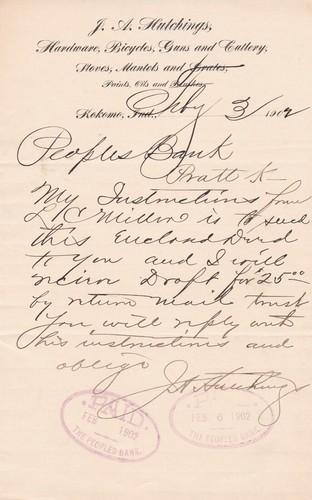 J. A. Hutchings,
Hardware, Bicycles, Guns and Cutlery,
Stoves, Mantels and Grates,
Paints, Oils and Brushes.
Kokomo, Ind., 3/ 1902
Peoples Bank
Pratt K—
My Instructions from
L C Miller is to send
this Enclosed Deed
to you and I will
recive Draft for $25.00
by return mail trust
you will reply with
his instructions and
oblige
J A Hutchings
PAID
FEB 1902
THE PEOPLES BANK.
PAID
FEB 6 1902
THE PEOPLES BANK.